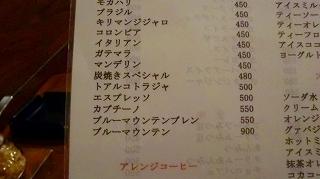 モカハリ 450
ブラジル 450
キリマンジャロ 450
コロンビア 450
イタリアン 450
ガテマラ 450
マンデリン 450
炭焼きスペシャル 480
トアルコトラジャ 500
エスプレッソ 500
カプチーノ 550
ブルーマウンテンブレン 550
ブルーマウンテン 900
アレンジコーヒー
アイスミル
ティーソー
ティーオレ
ティーフロ
アイスココ
ヨーグルト
ソーダ水
クリーム
オレンジ
グァバジ
ホットミ
アイスミ
抹茶オレ
コカコー